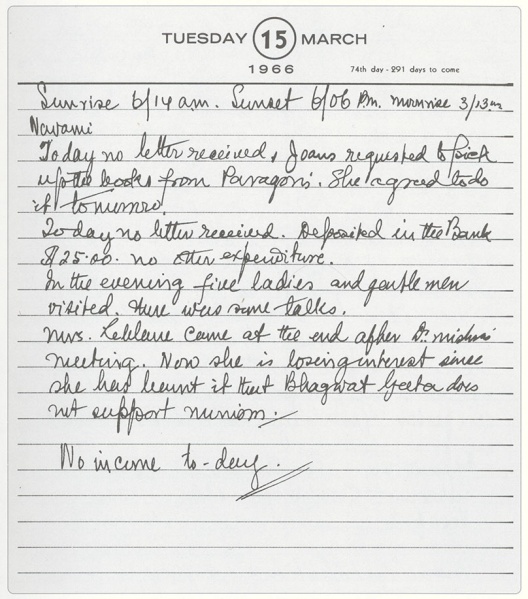 TUESDAY 15 MARCH
1966
74th day - 291 days to come
Sunrise 6/14 am. Sunset 6/06 Pm. moonrise 3/13 am
Navami
Today no letter received, Joans requested to pick
up the books from Paragon's. She agreed to do
it tomorrow.
Today no letter received. Deposited in the Bank
$25.00. no other expenditure.
In the evening five ladies and gentlemen
visited. There was some talks.
Mrs. came at the end after Dr. mishra's
meeting. Now she is losing interest since
she has learnt it that Bhagwat Geeta does
not support
No income to-day.